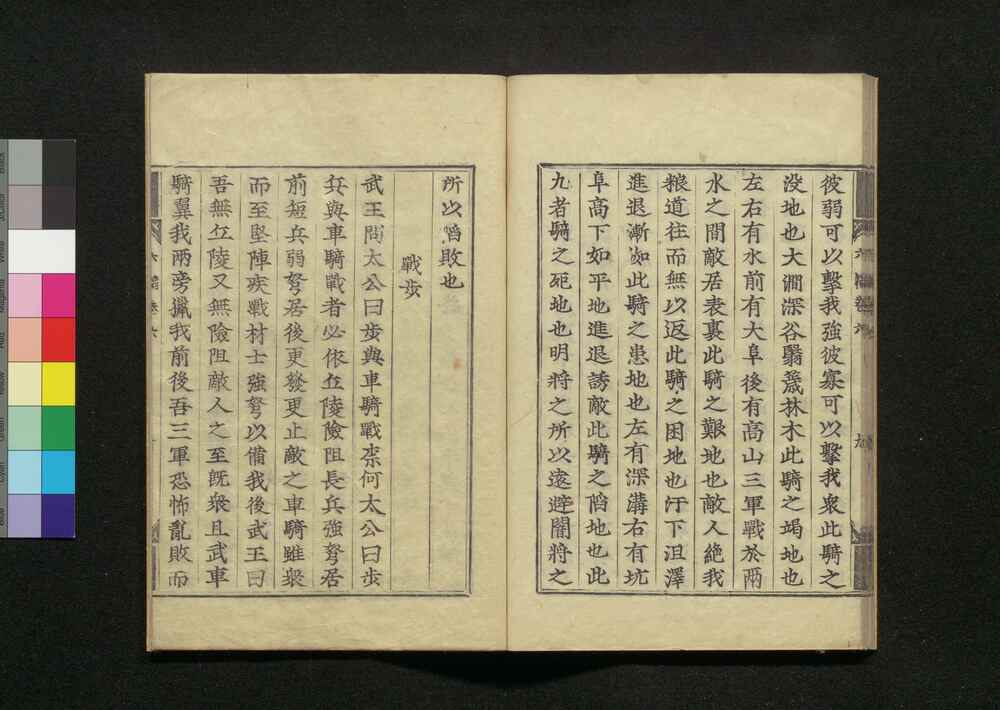 彼弱可以擊我強彼寡可以擊我衆此騎之
没地也大澗深谷翳薉林木此騎之竭地也
左右有水前有大阜後有高山三軍戰於兩
水之間敵居表裏此騎之艱地也敵人絶我
粮道往而無以返此騎之困地也汙下沮澤
進退漸洳此騎之患地也左有深溝右有坑
阜高下如平地進退誘敵此騎之陷地也此
九者騎之死地也明將之所以遠避闇將之
所以陷敗也
戰步
武王問太公曰步與車騎戰柰何太公曰步
兵與車騎戰者必依丘陵險阻長兵強弩居
前短兵弱弩居後更發更止敵之車騎雖衆
而至堅陣疾戰材士強弩以備我後武王曰
吾無丘陵又無險阻敵人之至旣衆且武車
騎翼我兩旁獵我前後吾三軍恐怖亂敗而
六韜卷六
六韜卷六
九